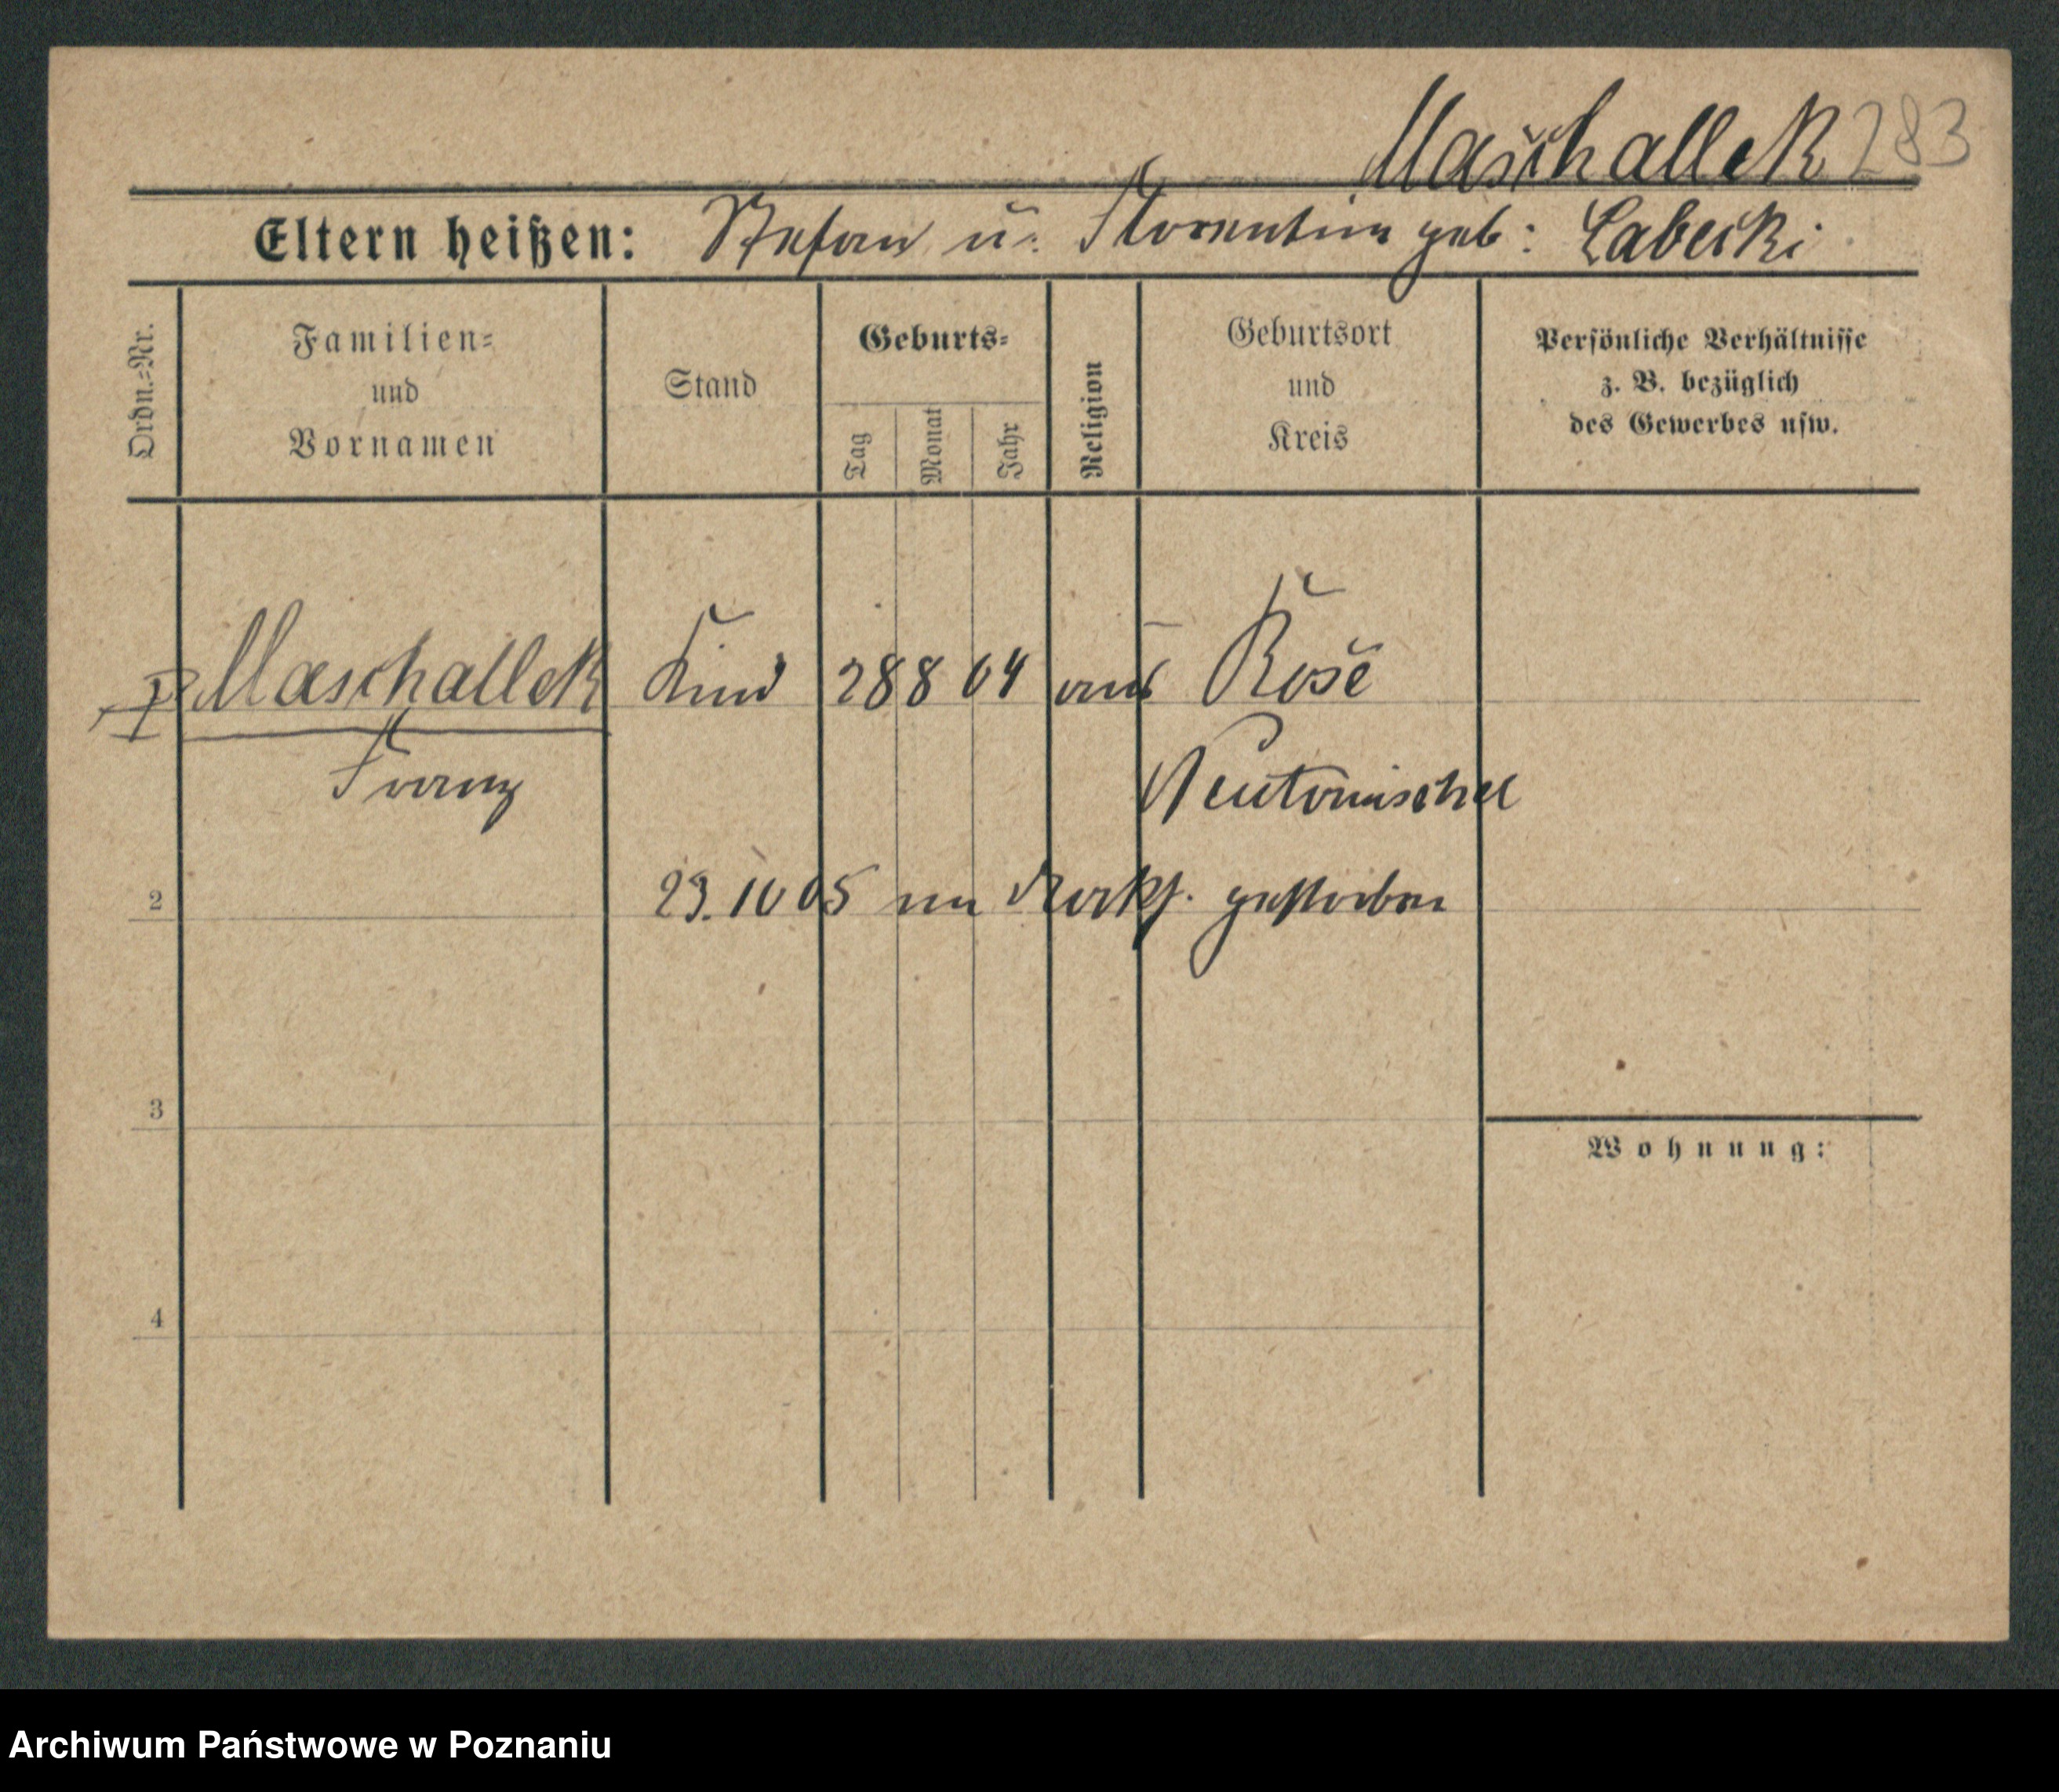 Maschallek 283
Eltern heißen: Stefan u. Florentine geb: Labecki
Ordn.=Nr.
Familien=
und
Vornamen
Stand
Geburts=
Tag
Monat
Jahr
Religion
Geburtsort
und
Kreis
Persönliche Verhältnisse
z. B. bezüglich
des Gewerbes usw.
Maschallek Kind 28 8 04 Rose
Franz Neutomischel
2 23. 10 05 gestorben
3
Wohnung:
4
Archiwum Państwowe w Poznaniu